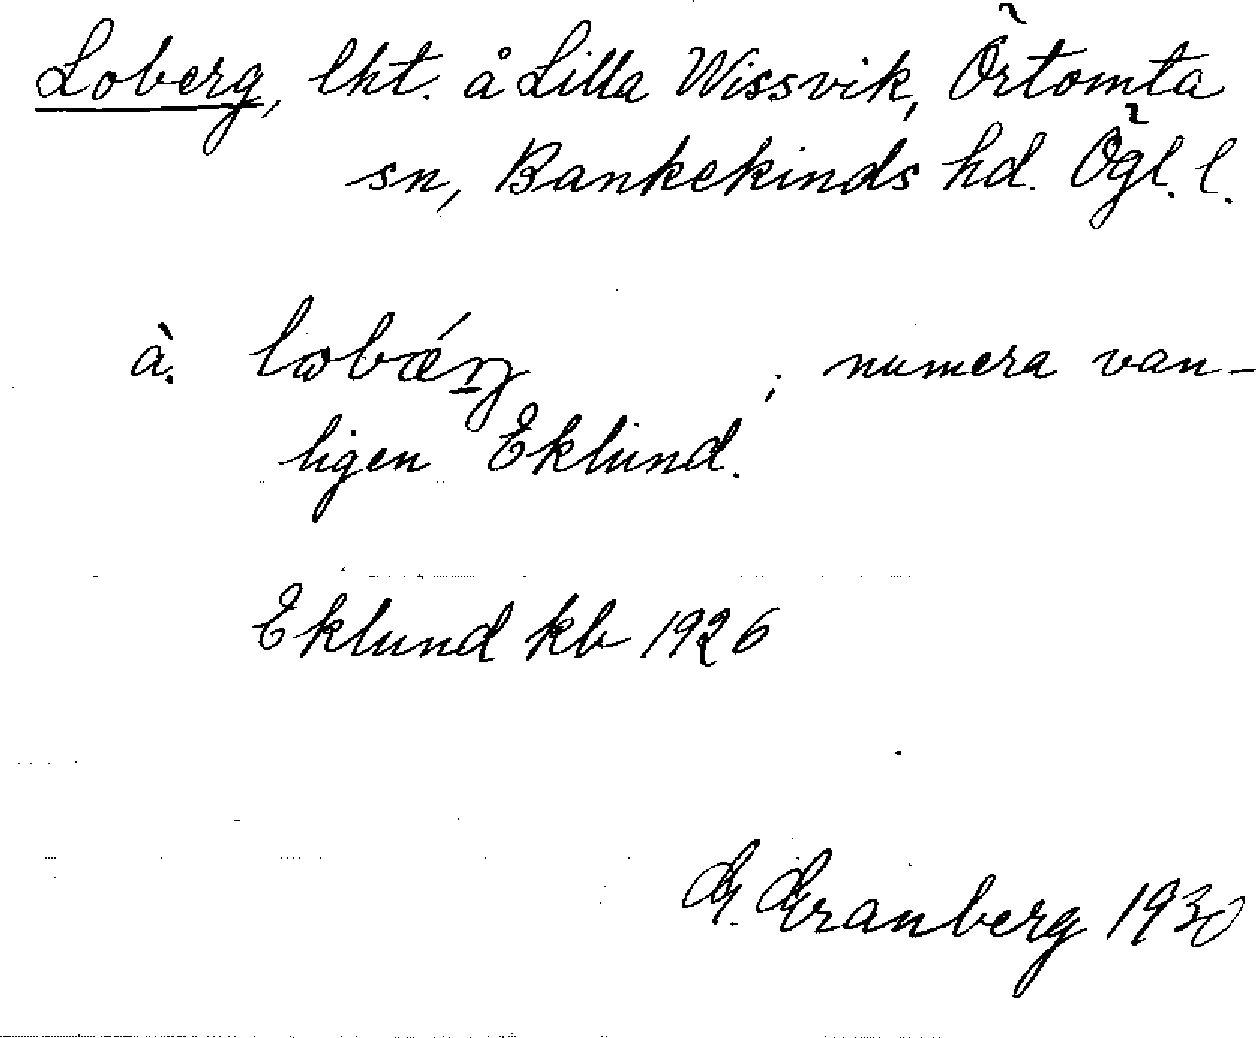 Loberg, lht. å Lilla Wissvik, Örtomta
sn, Bankekinds hd. Ögl. l.
à. ; numera van-
ligen Eklund.
Eklund kb 1926
G. Granberg 1930